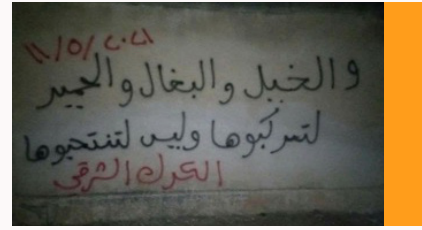 ١١/٥/٢٠٢١
والخيل والبغال والحمير
لتركبوها وليس لتنتخبوها
الكرك الشرقي